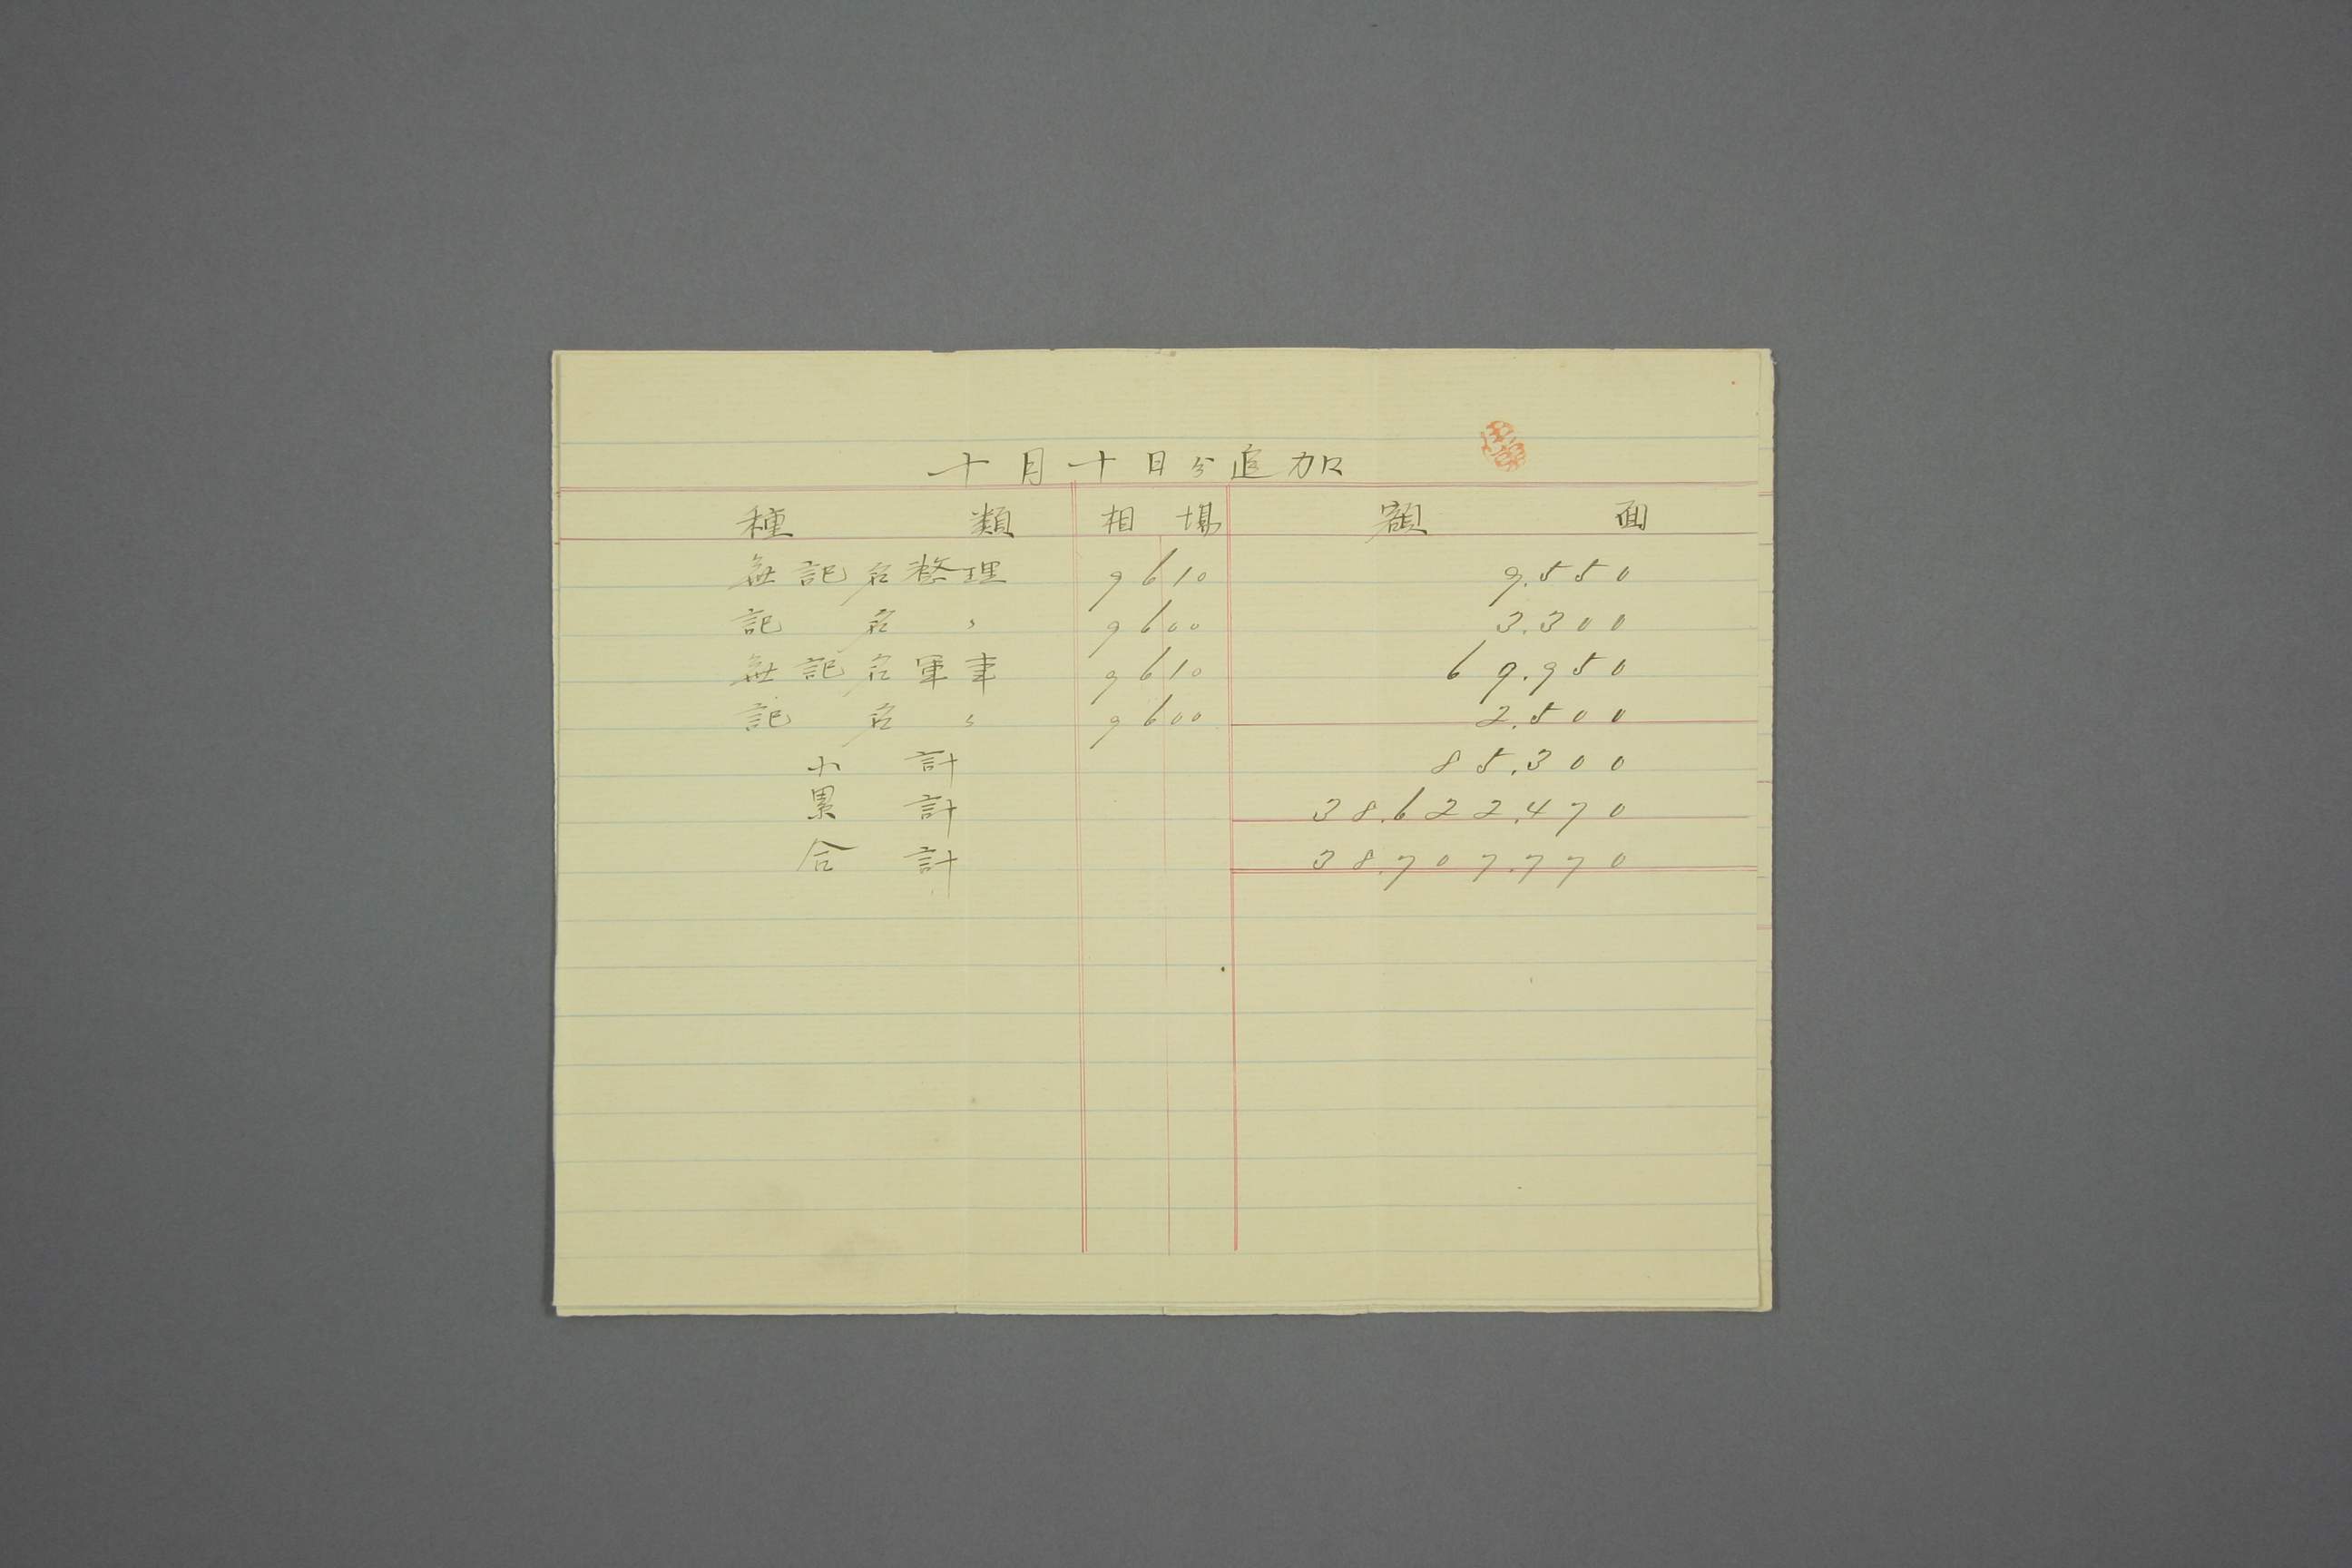 十月十日分追加
種類 相場 額面
無記名整理 9610 9.550
記名〃 9600 3.300
無記名軍事 9610 69.950
記名〃 9600 2.500
小計 85.300
累計 38.622.470
合計 38.707.770